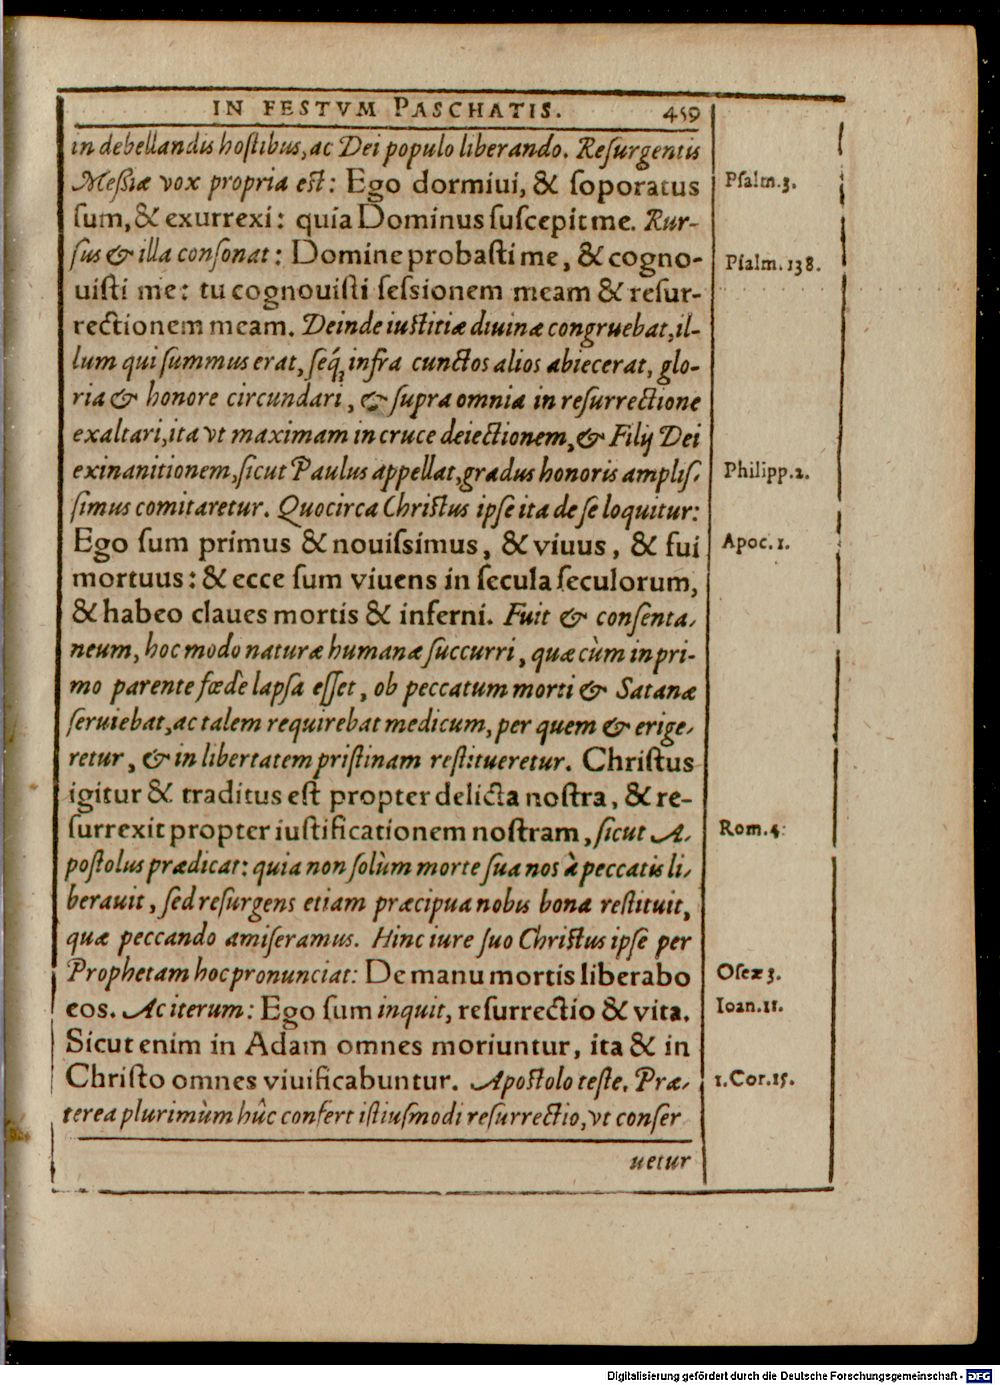 IN FESTVM PASCHATIS. 459
in debellandis hoſtibus, ac Dei populo liberando. Reſurgentis
Meßiæ vox propria eſt: Ego dormiui, & ſoporatus
Pſalm.3.
ſum, & exurrexi: quia Dominus ſuſcepit me. Rur-
ſus & illa conſonat: Domine probaſti me, & cogno-
Pſalm.138.
uiſti me: tu cognouiſti ſeſsionem meam & reſur-
rectionem meam. Deinde iuſtitiæ diuinæ congruebat, il-
lum qui ſummus erat, ſeq́ʒ infra cunctos alios abiecerat, glo-
ria & honore circundari, & ſupra omnia in reſurrectione
exaltari, ita vt maximam in cruce deiectionem, & Filij Dei
exinanitionem, ſicut Paulus appellat, gradus honoris ampliſ-
Philipp.2.
ſimus comitaretur. Quocirca Chriſtus ipſe ita de ſe loquitur:
Ego ſum primus & nouiſsimus, & viuus, & fui
Apoc.1.
mortuus: & ecce ſum viuens in ſecula ſeculorum,
& habeo claues mortis & inferni. Fuit & conſenta-
neum, hoc modo naturæ humanæ ſuccurri, quæ cùm in pri-
mo parente fœdè lapſa eſſet, ob peccatum morti & Satanæ
ſeruiebat, ac talem requirebat medicum, per quem & erige-
retur, & in libertatem priſtinam reſtitueretur. Chriſtus
igitur & traditus eſt propter delicta noſtra, & re-
ſurrexit propter iuſtificationem noſtram, ſicut A-
Rom.4.
poſtolus prædicat: quia non ſolùm morte ſua nos à peccatis li-
berauit, ſed reſurgens etiam præcipua nobis bona reſtituit,
quæ peccando amiſeramus. Hinc iure ſuo Chriſtus ipſe per
Prophetam hoc pronunciat: De manu mortis liberabo
Oſeæ 3.
eos. Ac iterum: Ego ſum inquit, reſurrectio & vita.
Ioan.11.
Sicut enim in Adam omnes moriuntur, ita & in
Chriſto omnes viuificabuntur. Apoſtolo teſte. Præ-
1.Cor.15.
terea plurimùm hûc confert iſtiuſmodi reſurrectio, vt conſer
uetur
Digitalisierung gefördert durch die Deutsche Forschungsgemeinschaft - DFG